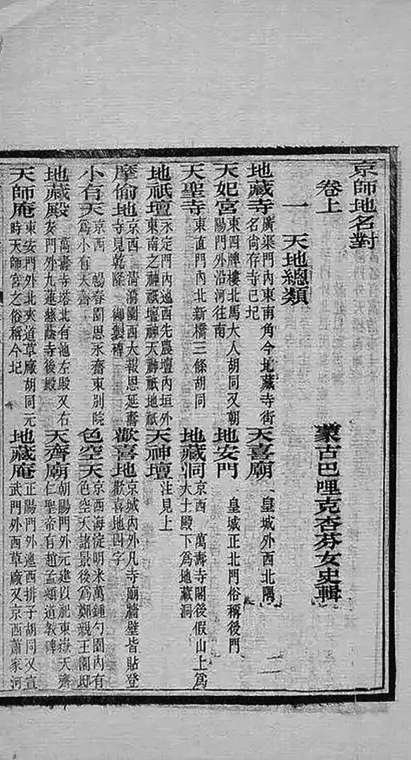 京師地名對
卷上 蒙古巴哩克杏芬女史輯
一 天地總類
地藏寺 廣渠門內東南角今地藏寺街名尙存寺已圮 天喜廟 皇城外西北隅
天妃宮 東四牌樓北馬大人胡同又朝陽門外沿河往南 地安門 皇城正北門俗稱後門
天聖寺 東直門內北新橋三條胡同 地藏洞 京西萬壽寺閣後假山上爲大士殿下爲地藏洞
地祇壇 永定門內迤西先農壇內垣外東南之神祇壇祀天神地祇 天神壇 注見上
摩偷地 京西清漪園西大報恩延壽寺見乾隆御製碑 歡喜地 京城內外凡寺廟牆壁皆貼登歡喜地四字
小有天 京西暢春園思永齋東別院爲小有天 色空天 京西海淀明米萬鍾勺園內有色空天諸景後爲鄭親王園邸
地藏殿 萬壽寺塔北有池左殿又右安門外九蓮慈蔭寺後殿 天齊廟 朝陽門外元建以祀東嶽天齊仁聖帝有趙孟頫道敎碑
天師庵 東安門外北夾道草廠胡同元時天師宮之俗稱今圮 地藏庵 正陽門外迤西排子胡同又宣武門外西草廠又京西蕭家河